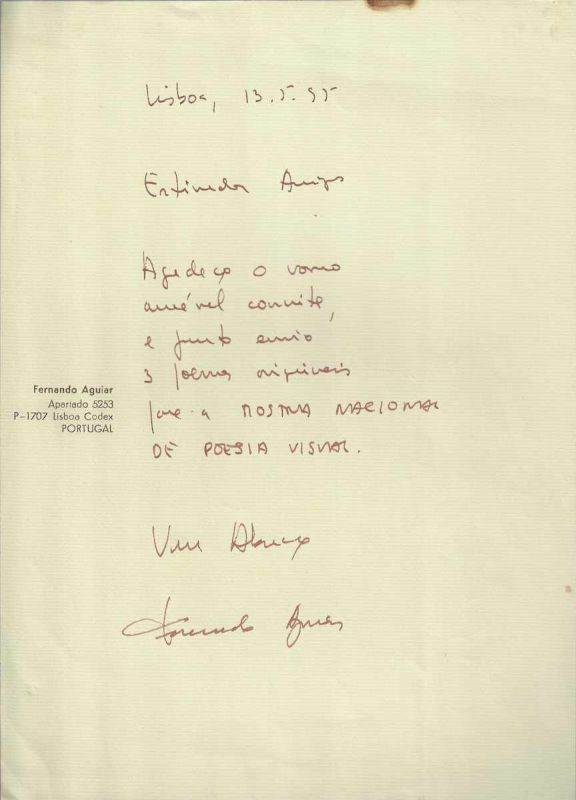 Lisboa, 13.5.95
Estimados Amigos
Agradeço o vosso
amável convite,
e junto envio
3 poemas originais
para a MOSTRA NACIONAL
DE POESIA VISUAL.
Fernando Aguiar
Apartado 5253
P-1707 Lisboa Codex
PORTUGAL
Um Abraço
Fernando Aguiar